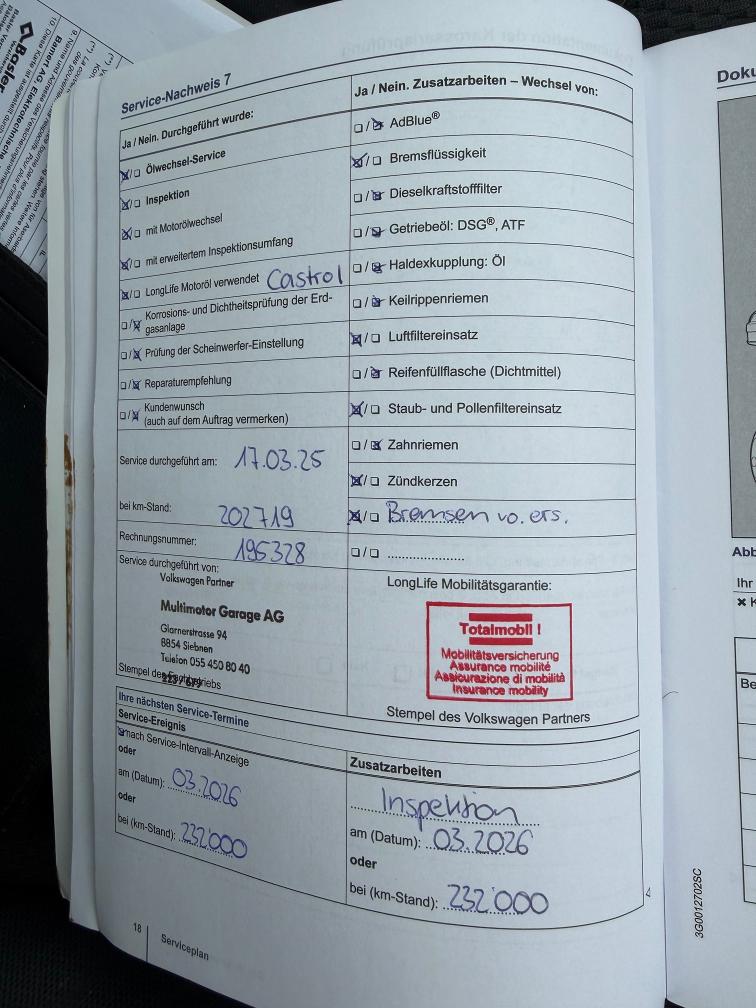 Service-Nachweis 7
Ja / Nein. Durchgeführt wurde:
☒/☐ Ölwechsel-Service
☒/☐ Inspektion
☒/☐ mit Motorölwechsel
☒/☐ mit erweitertem Inspektionsumfang
☒/☐ LongLife Motoröl verwendet Castrol
☐/☒ Korrosions- und Dichtheitsprüfung der Erd-
gasanlage
☐/☒ Prüfung der Scheinwerfer-Einstellung
☐/☒ Reparaturempfehlung
☐/☒ Kundenwunsch
(auch auf dem Auftrag vermerken)
Service durchgeführt am: 17.03.25
bei km-Stand: 202719
Rechnungsnummer: 195328
Service durchgeführt von:
Volkswagen Partner
Multimotor Garage AG
Glarnerstrasse 94
8854 Siebnen
Telefon 055 450 80 40
Ja / Nein. Zusatzarbeiten – Wechsel von:
☐/☒ AdBlue®
☒/☐ Bremsflüssigkeit
☐/☒ Dieselkraftstofffilter
☐/☒ Getriebeöl: DSG®, ATF
☐/☒ Haldexkupplung: Öl
☐/☒ Keilrippenriemen
☒/☐ Luftfiltereinsatz
☐/☒ Reifenfüllflasche (Dichtmittel)
☒/☐ Staub- und Pollenfiltereinsatz
☐/☒ Zahnriemen
☒/☐ Zündkerzen
☒/☐ Bremsen vo. ers.
☐/☐ ......................
LongLife Mobilitätsgarantie:
Totalmobil !
Mobilitätsversicherung
Assurance mobilité
Assicurazione di mobilità
Insurance mobility
Stempel des Volkswagen Partners
Ihre nächsten Service-Termine
Service-Ereignis
☒ nach Service-Intervall-Anzeige
oder
am (Datum): 03.2026
oder
bei (km-Stand): 232000
Zusatzarbeiten
Inspektion
am (Datum): 03.2026
oder
bei (km-Stand): 232'000
18
Serviceplan
3G0012702SC
Doku
Abb
Ihr
Be
Basler